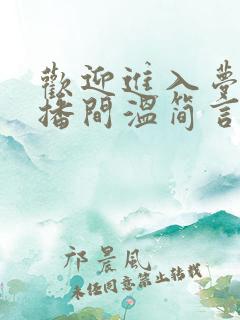 歡迎進入夢
播間溫简言
祁晨風
未经同意禁止转载